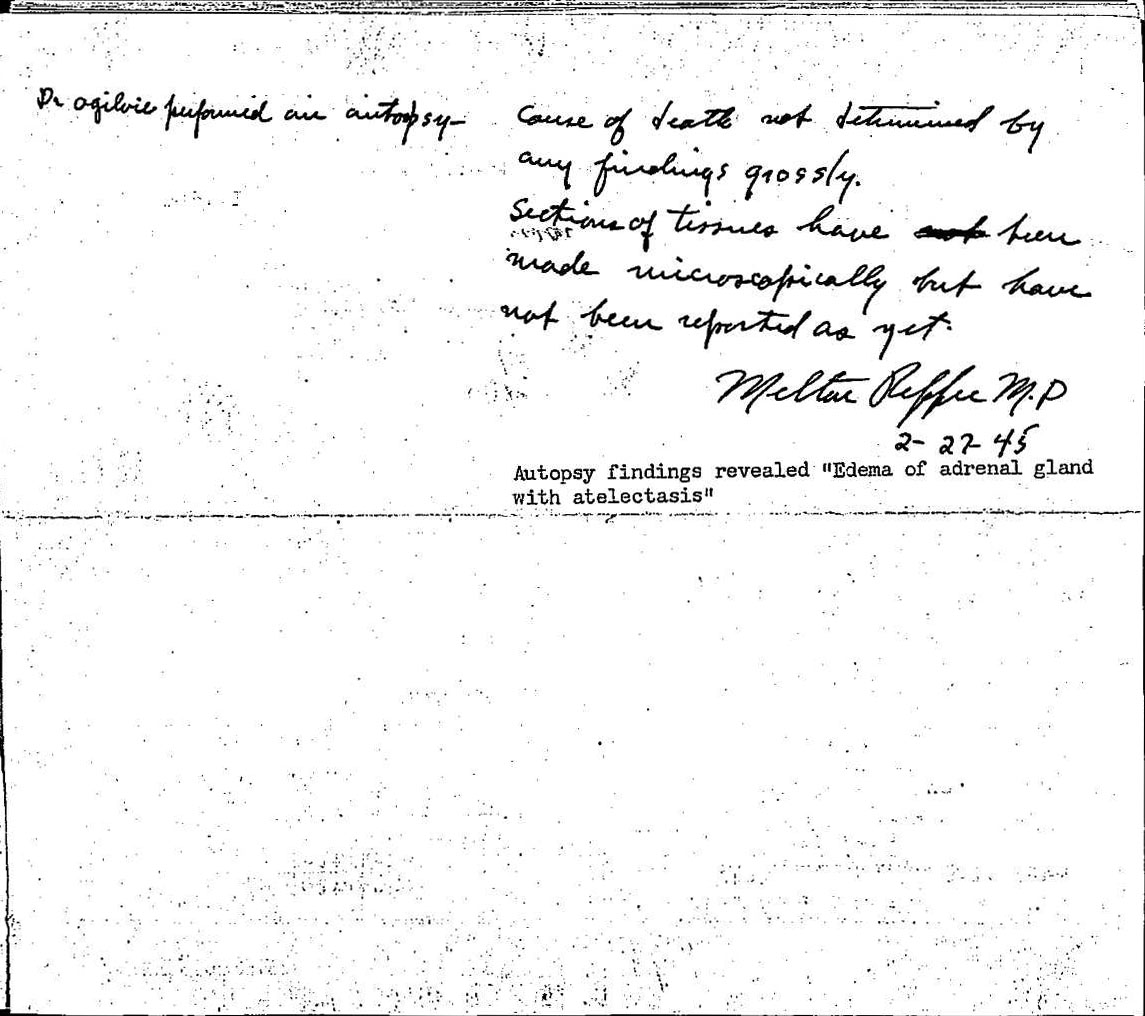 Dr ogilvie performed an autopsy-
Cause of death not determined by
any findings grossly.
Sections of tissues have not been
made microscopically but have
not been reported as yet.
M.D
2-27-45
Autopsy findings revealed "Edema of adrenal gland
with atelectasis"